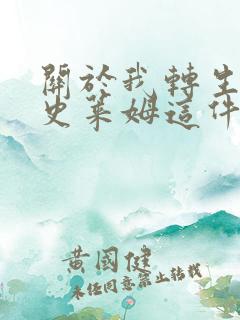 關於我轉生
史萊姆這件
黃國健
未經同意禁止轉載